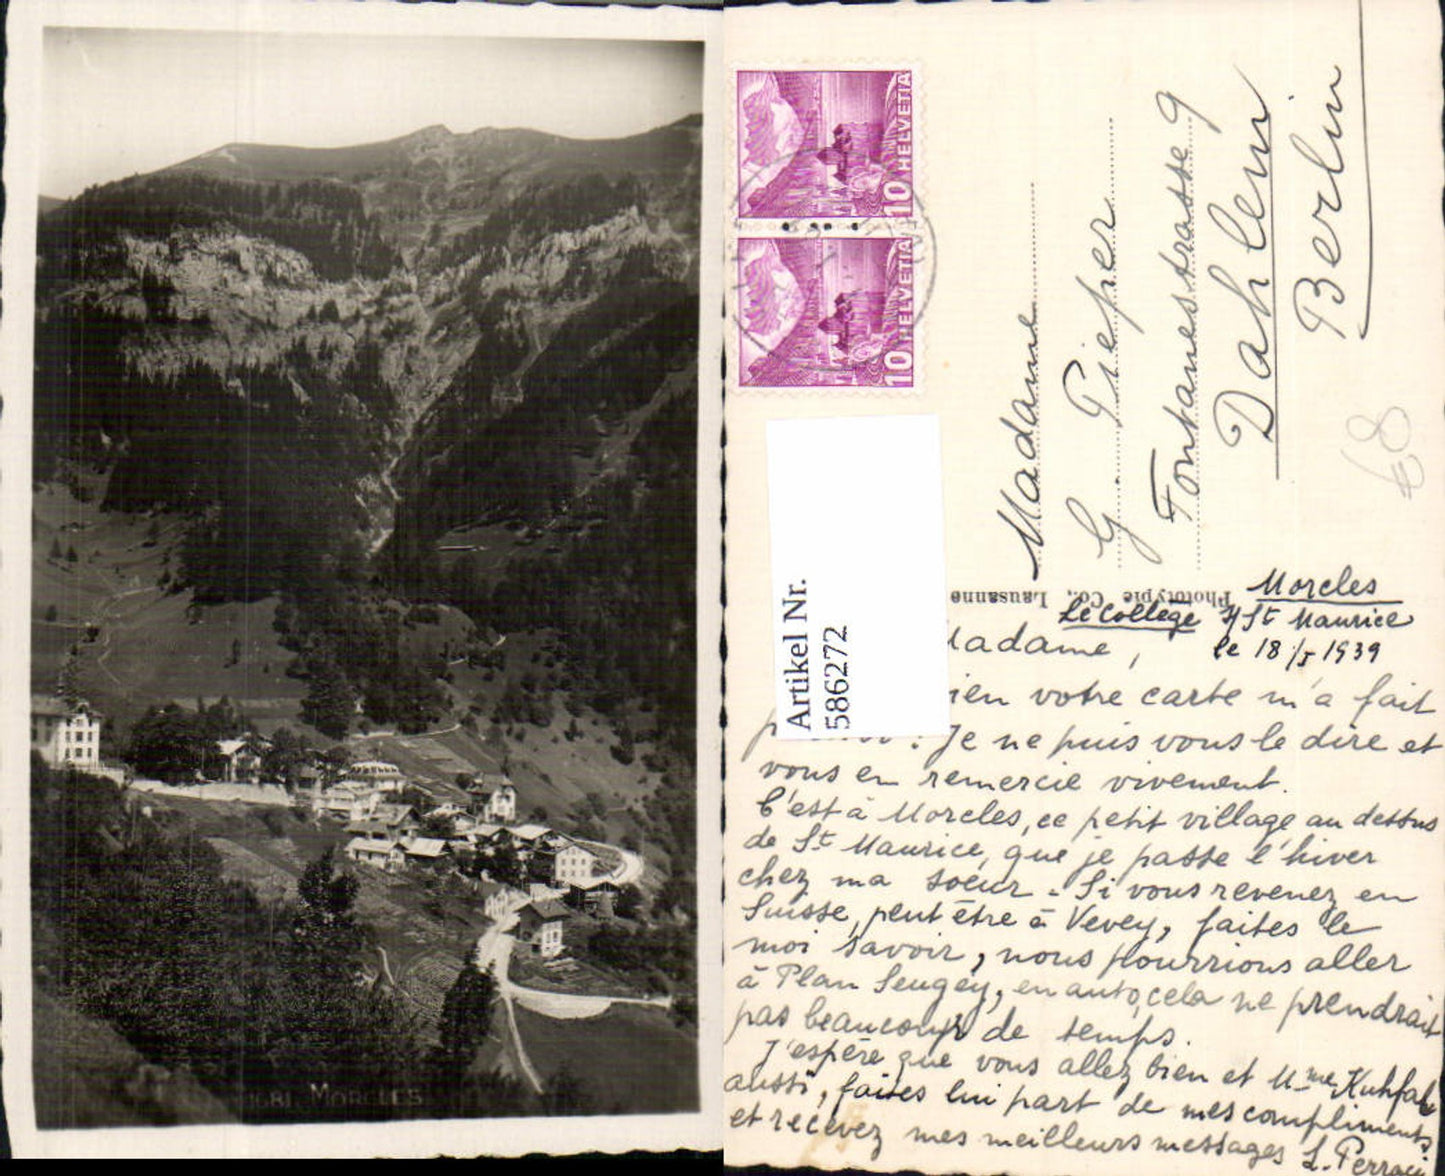 MORCLES
10 HELVETIA
10 HELVETIA
Artikel Nr.
586272
Madame
G. Pieper
Fontanestrasse 9
Dahlem
Berlin
€8
Phototypie Co., Lausanne
Morcles
Le Collège s/ St Maurice
le 18/I 1939
Madame,
bien votre carte m'a fait
Je ne puis vous le dire et
vous en remercie vivement.
C'est à Morcles, ce petit village au dessus
de St Maurice, que je passe l'hiver
chez ma soeur. Si vous revenez en
Suisse, peut être à Vevey, faites le
moi savoir, nous pourrions aller
à Plan Seugey, en auto, cela ne prendrait
pas beaucoup de temps.
J'espère que vous allez bien et Mme
aussi, faites lui part de mes compliments
et recevez mes meilleurs messages